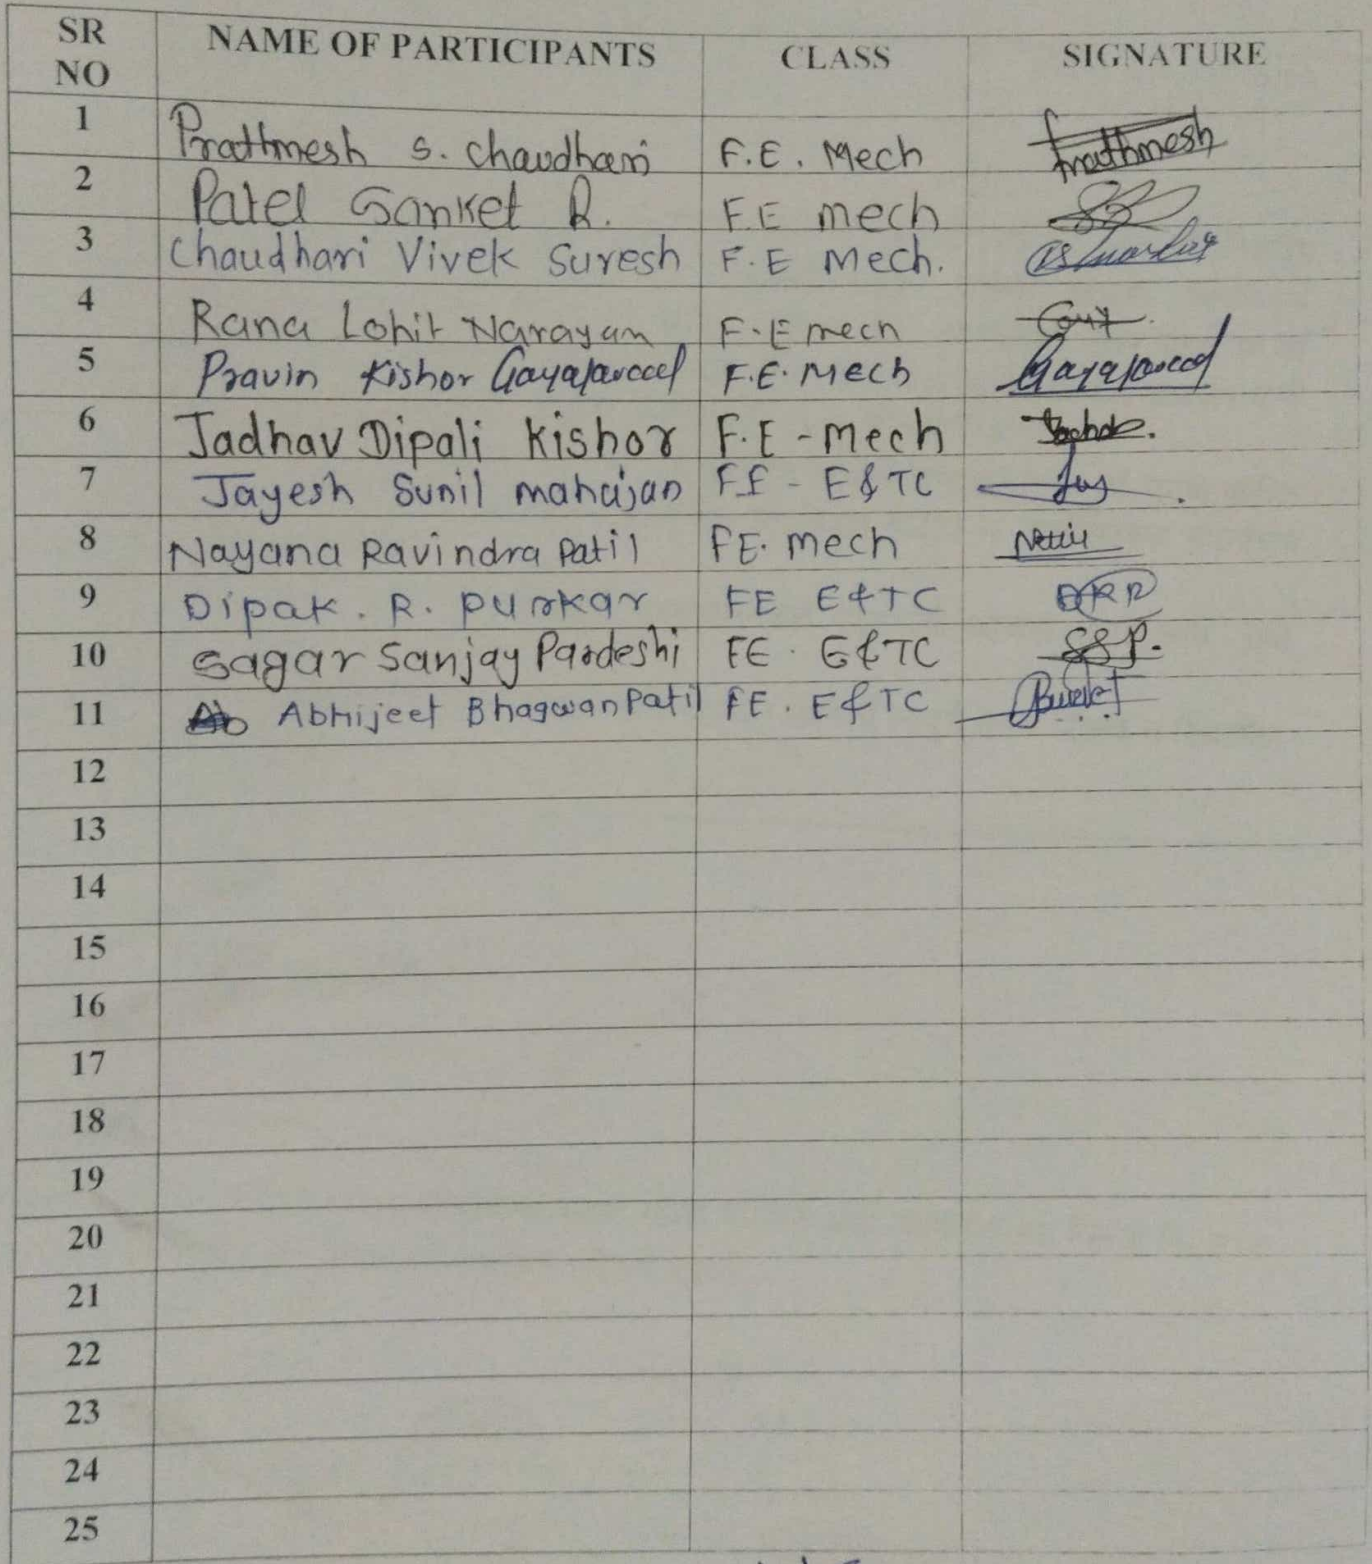 SR NO NAME OF PARTICIPANTS CLASS SIGNATURE
1 Prathmesh S. Chaudhari F.E. Mech Prathmesh
2 Patel Sanket R. F.E mech
3 Chaudhari Vivek Suresh F.E Mech.
4 Rana Lohit Narayan F.E mech
5 Pravin Kishor F.E. Mech
6 Jadhav Dipali Kishor F.E - Mech
7 Jayesh Sunil mahajan FE - E&TC
8 Nayana Ravindra Patil FE. mech
9 Dipak. R. purkar FE E&TC DRP
10 Sagar Sanjay Pardeshi FE. E&TC SSP.
11 Abhijeet Bhagwan Patil FE. E&TC
12
13
14
15
16
17
18
19
20
21
22
23
24
25